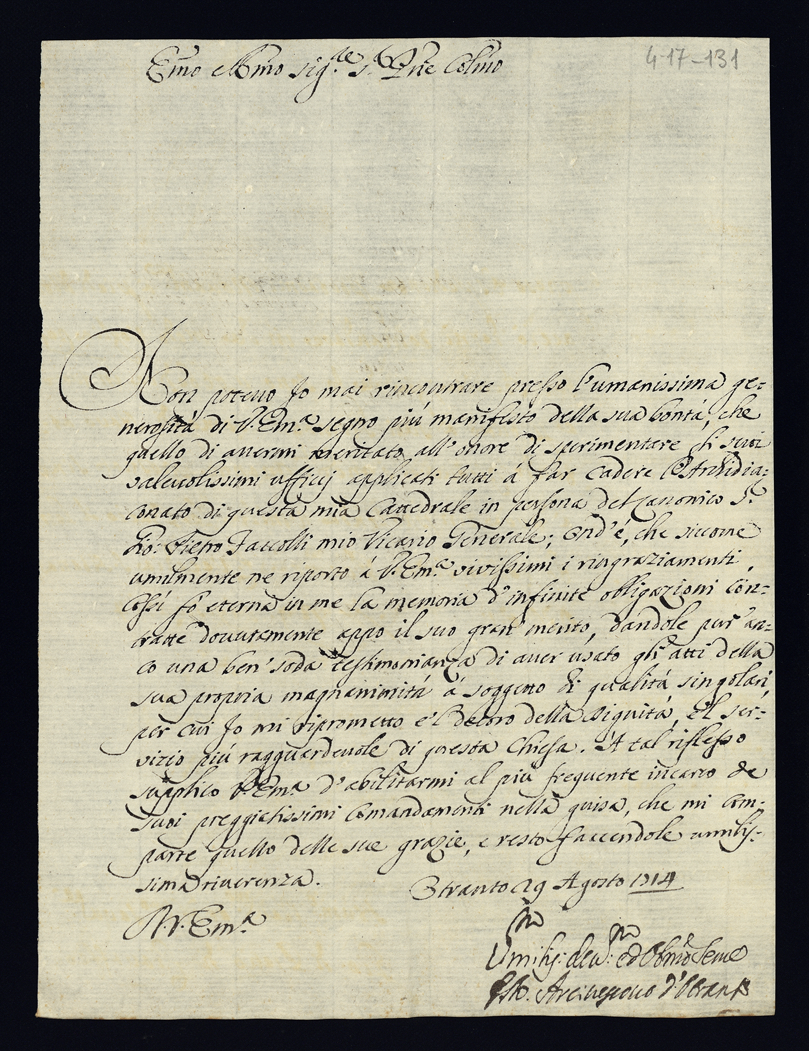 4-17-131
Emo e Rmo sig.re s.r Pne Colmo
Non potevo Jo mai rincontrare presso l'umanissima ge-
nerosità di V. Em.a segno più manifesto della sua bontà, che
quello di avermi meritato all'onore di sperimentare gli suoi
valevolissimi ufficj applicati tutti à far cadere l'Archidia-
conato di questa mia Cattedrale in persona del Canonico S.r
Gio: Pietro mio Vicario Generale; ond'è, che siccome
umilmente ne riporto à V. Em.a vivissimi i ringraziamenti,
così fò eterna in me la memoria d'infinite obligazioni con-
tratte dovutamente appo il suo gran merito, dandole pur'an-
co una ben'soda testimonianza di aver usato gli atti della
sua propria magnanimità à soggetto di qualità singolari,
per cui Jo mi riprometto e'l decoro della dignità, e'l ser-
vizio più ragguardevole di questa Chiesa. A tal riflesso
supplico V. Em.a d'abilitarmi al più frequente incarco de
suoi preggiatissimi comandamenti nella guisa, che mi com-
parte quello delle sue grazie, e resto facendole umilis-
sima riverenza.
Otranto 29 Agosto 1714
D. V. Em.a
Umilis: dev: ed Obmo Serve
Arcivescovo d'Otranto